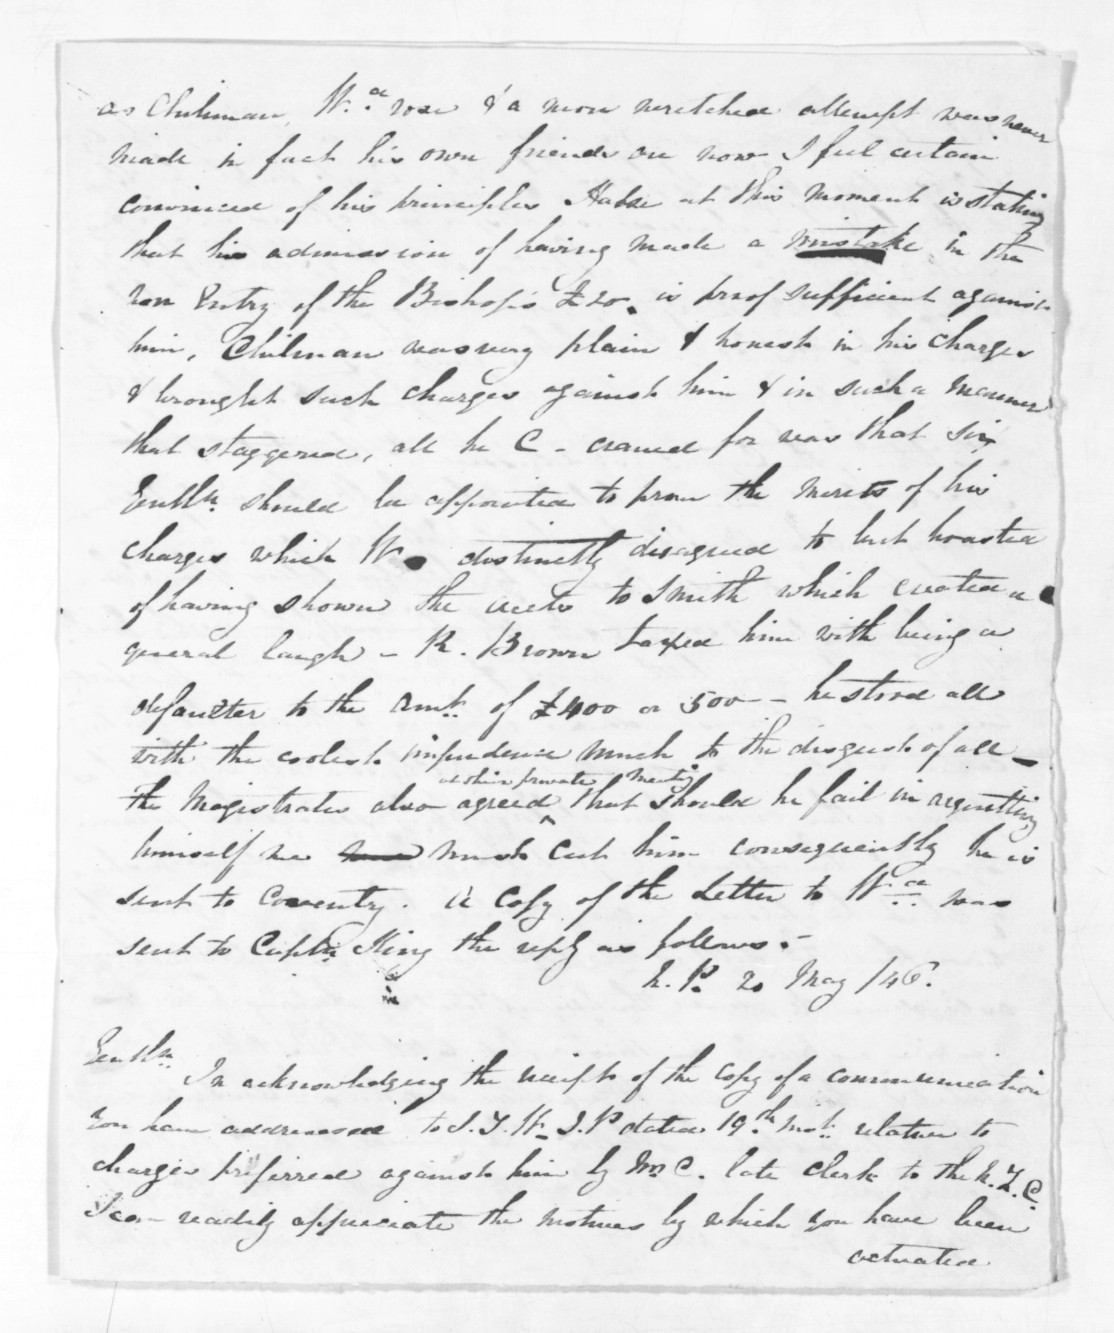 as Chilman, W.ce rose & a more wretched attempt was never
made in fact his own friends are now I feel certain
convinced of his principles Halse at this moment is stating
that his admission of having made a mistake in the
non Entry of the Bishop's £20. is proof sufficient against
him, Chilman was very plain & honest in his charges
& brought such charges against him & in such a manner
that staggered, all he C - craved for was that six
Gentln. should be appointed to prove the merits of his
charges which W distinctly disagreed to but boasted
of having shown the accts to Smith which created a
general laugh - R. Brown taxed him with being a
defaulter to the amt. of £400 or 500 - he stood all
with the coolest impudence much to the disgust of all -
at their private Meeting
the Magistrates also agreed that should he fail in acquitting
himself we must cut him consequently he is
sent to Coventry. A Copy of the Letter to W.ce was
sent to Captn King the reply as follows. -
N.P. 20 May /46.
Gentln.
In acknowledging the receipt of the copy of a communication
you have addressed to J.T.W. J.P dated 19th inst. relative to
charges preferred against him by Mr C. late clerk to the N.Z.C.
I can readily appreciate the motives by which you have been
actuated